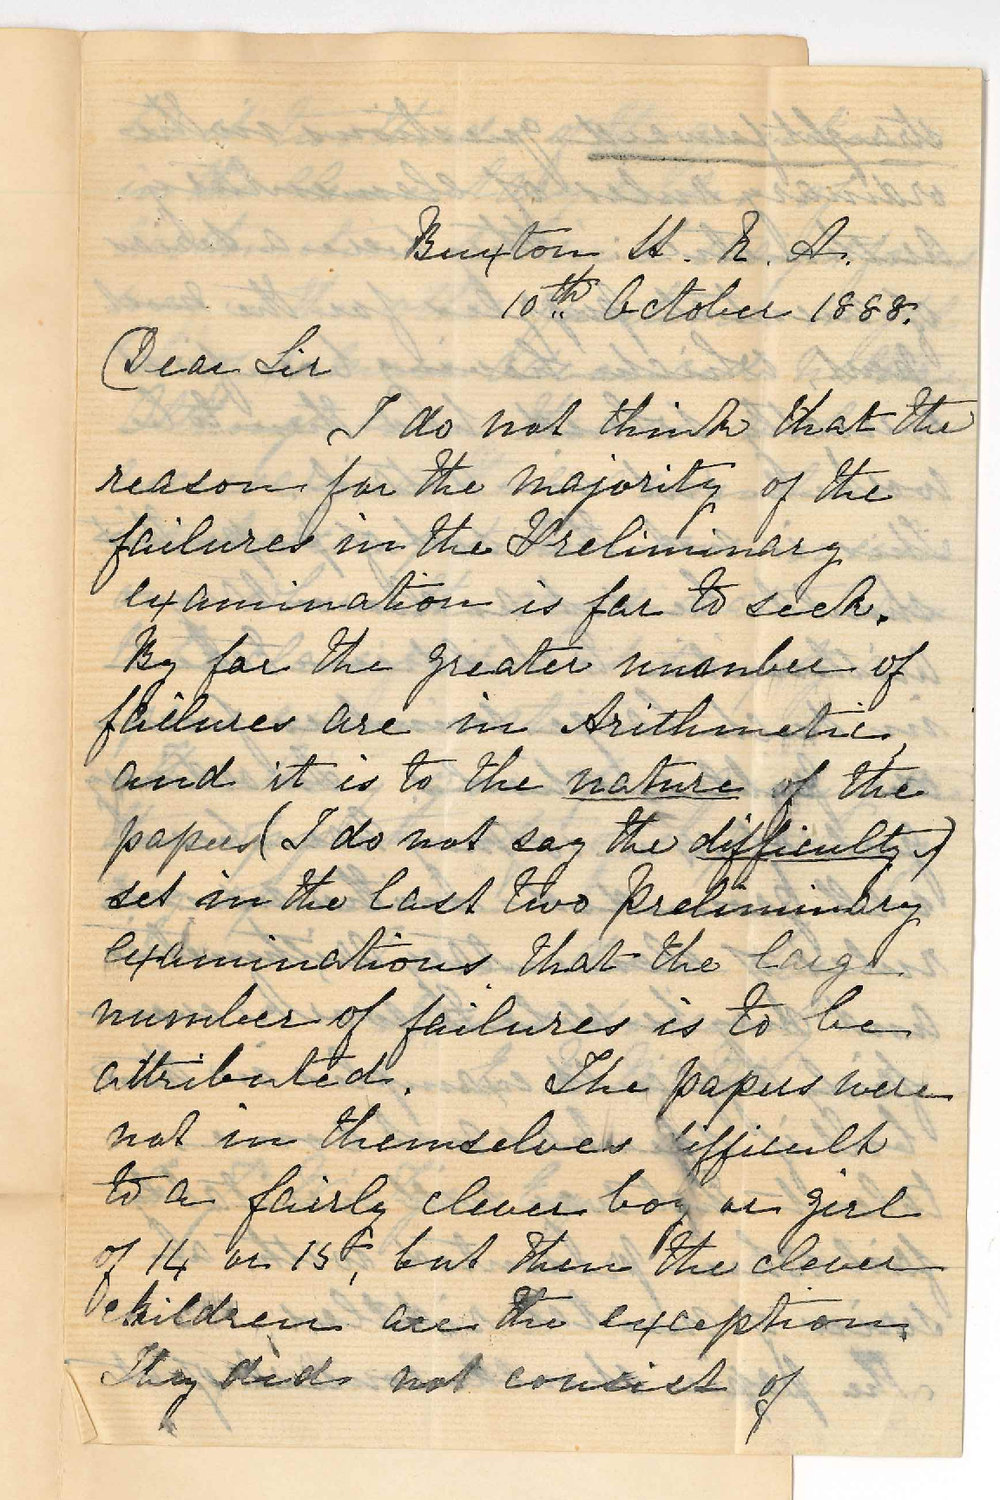 Buxton St. N. A.
10th October 1888.
Dear Sir
I do not think that the
reason for the majority of the
failures in the Preliminary
examination is far to seek.
By far the greater number of
failures are in Arithmetic,
and it is to the nature of the
papers (I do not say the difficulty)
set in the last two preliminary
examinations that the large
number of failures is to be
attributed. The papers were
not in themselves difficult
to a fairly clever boy or girl
of 14 or 15, but then the clever
children are the exception.
They did not consist of